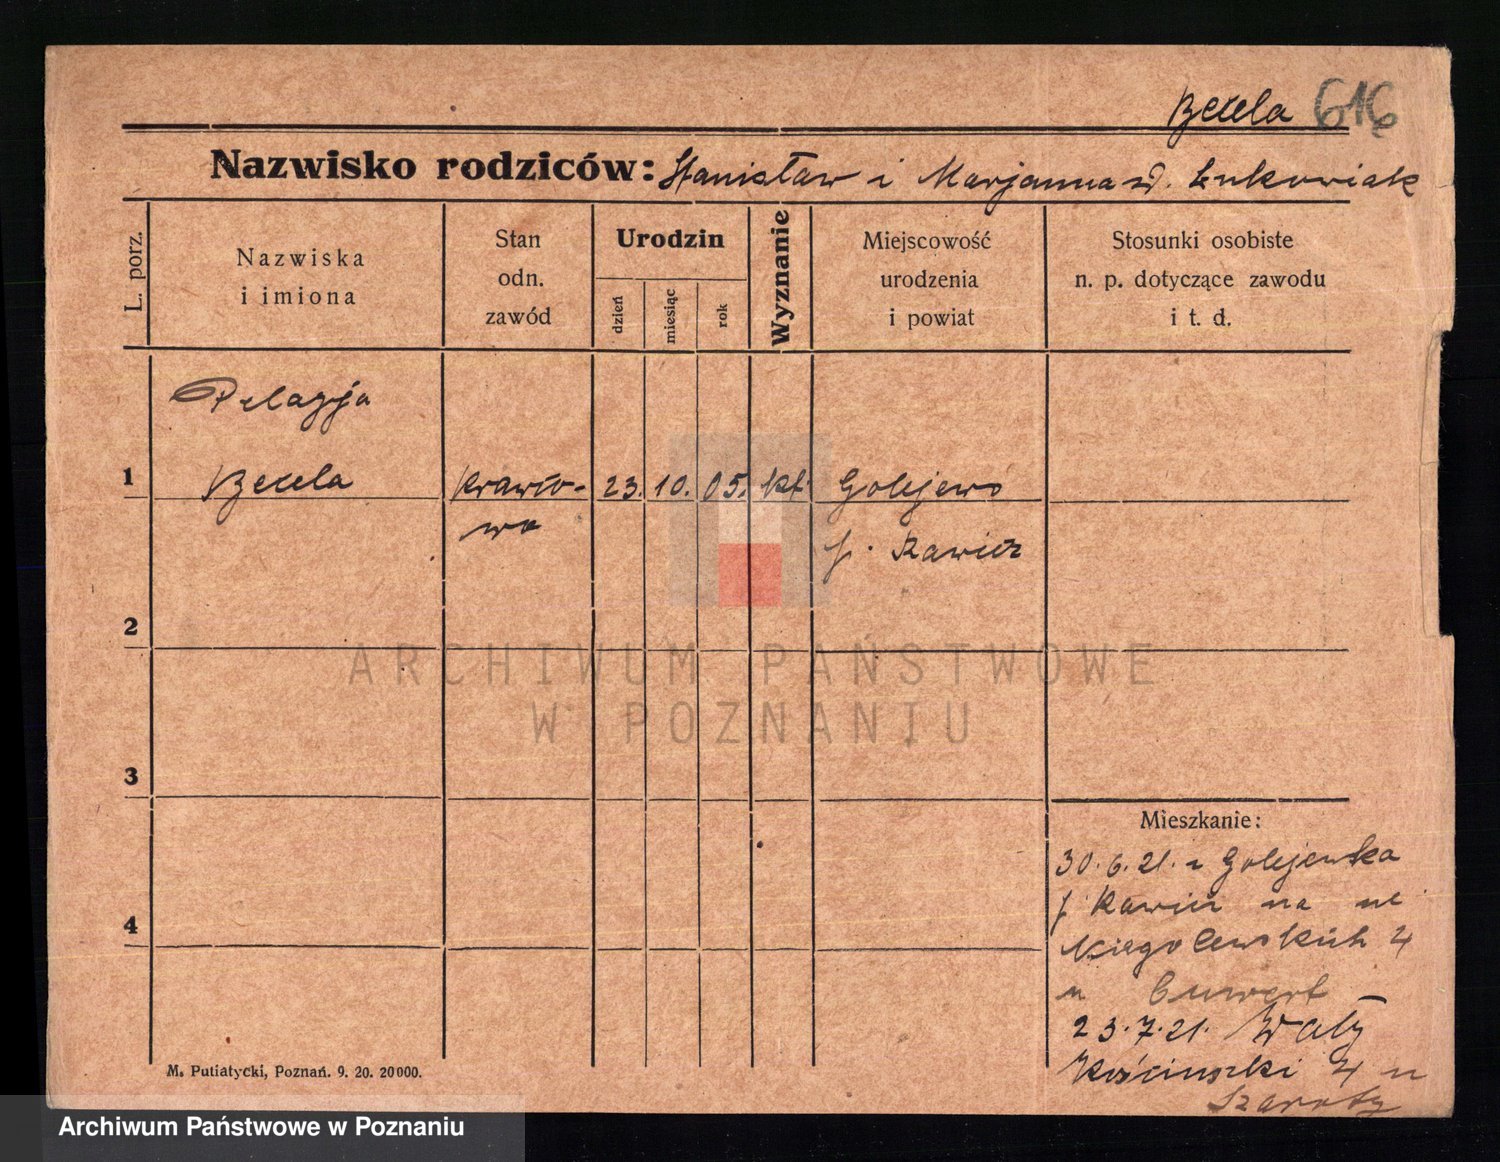 Becela 616
Nazwisko rodziców: Stanisław i Marjanna zd. Łukowiak
L. porz.
Nazwiska
i imiona
Stan
odn.
zawód
Urodzin
dzień
miesiąc
rok
Wyznanie
Miejscowość
urodzenia
i powiat
Stosunki osobiste
n. p. dotyczące zawodu
i t. d.
Pelagja
1 Becela krawco- 23. 10. 05. kt. Golejewo
wa p. Rawicz
2
ARCHIWUM PAŃSTWOWE
W POZNANIU
3
Mieszkanie:
30.6.21. z Golejewka
p Rawicz na ul
4
Niegolewskich 4
u
23.7.21. Wały
Kościuszki 4 u
M. Putiatycki, Poznań. 9. 20. 20000.
Archiwum Państwowe w Poznaniu